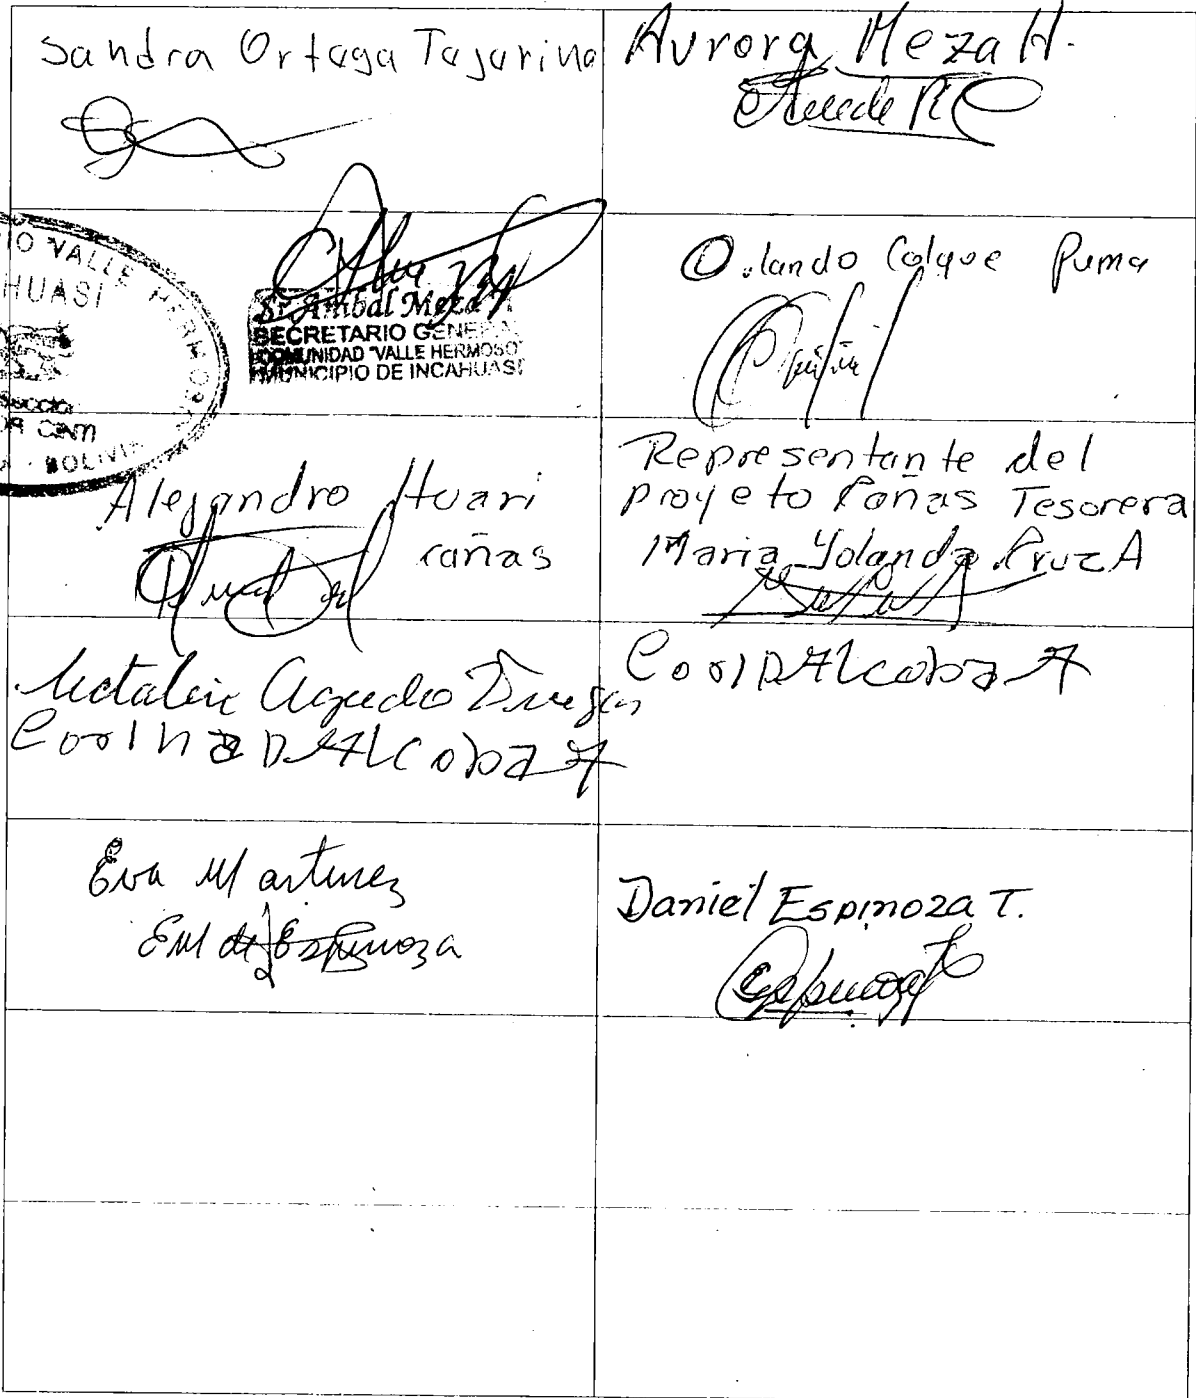 Sandra Ortega Tajarina
Aurora Meza H.
IO VALLE HERMOS
HUASI
Sección
OR CINTI
BOLIVI
Sr. Anibal Meza
SECRETARIO GENERAL
COMUNIDAD "VALLE HERMOSO"
MUNICIPIO DE INCAHUASI
Orlando Colque Puma
Alejandro Huari
cañas
Representante del
proyeto Cañas Tesorera
Maria Yolanda Cruz A
Agudo
Corina D Alcoba A
CoriD Alcoba A
Eva Martinez
EM de Espinoza
Daniel Espinoza T.